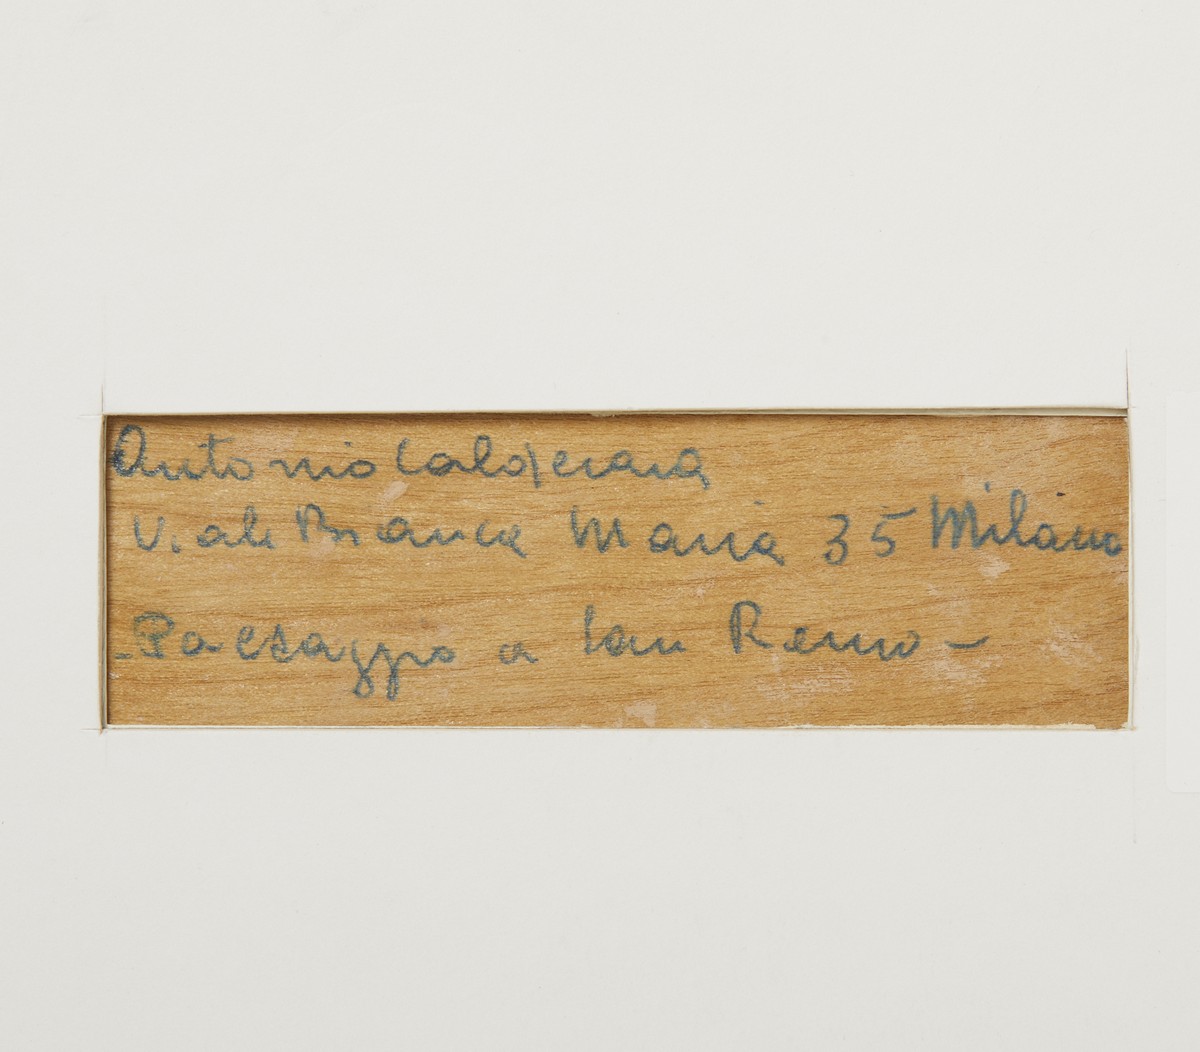 Antonio Calderara
Viale Bianca Maria 35 Milano
- Paesaggio a San Remo -